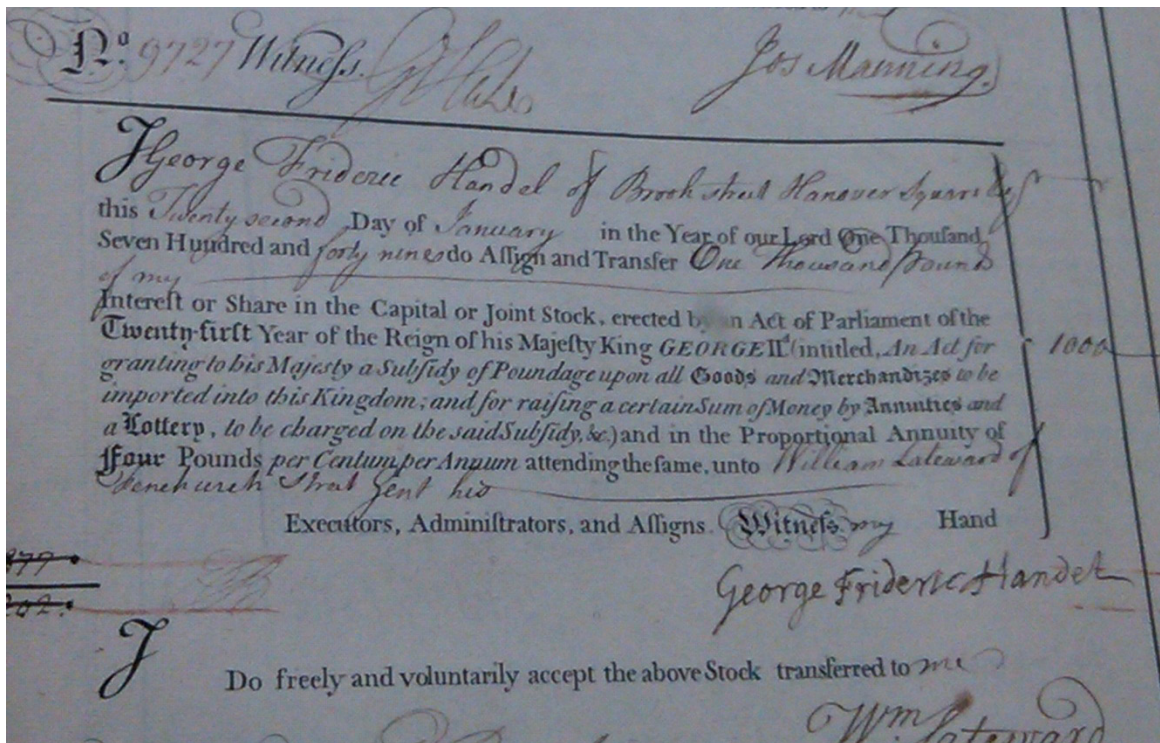 No. 9727 Witneſs.
Jos Manning.
I George Frideric Handel of Brook street Hanover Square Esq
this Twenty second Day of January in the Year of our Lord One Thouſand
Seven Hundred and forty nine do Aſſign and Transfer One Thousand Pounds
of my
Intereſt or Share in the Capital or Joint Stock, erected by an Act of Parliament of the
Twenty-firſt Year of the Reign of his Majeſty King GEORGE IId. (intitled, An Act for
granting to his Majeſty a Subſidy of Poundage upon all Goods and Merchandizes to be
imported into this Kingdom; and for raiſing a certain Sum of Money by Annuities and
a Lottery, to be charged on the said Subſidy, &c.) and in the Proportional Annuity of
Four Pounds per Centum per Annum attending the ſame, unto William Lateward of
Fenchurch Street Gent his
Executors, Adminiſtrators, and Aſſigns. Witneſs my Hand
1000
George Frideric Handel
I
Do freely and voluntarily accept the above Stock transferred to me
Wm. Lateward